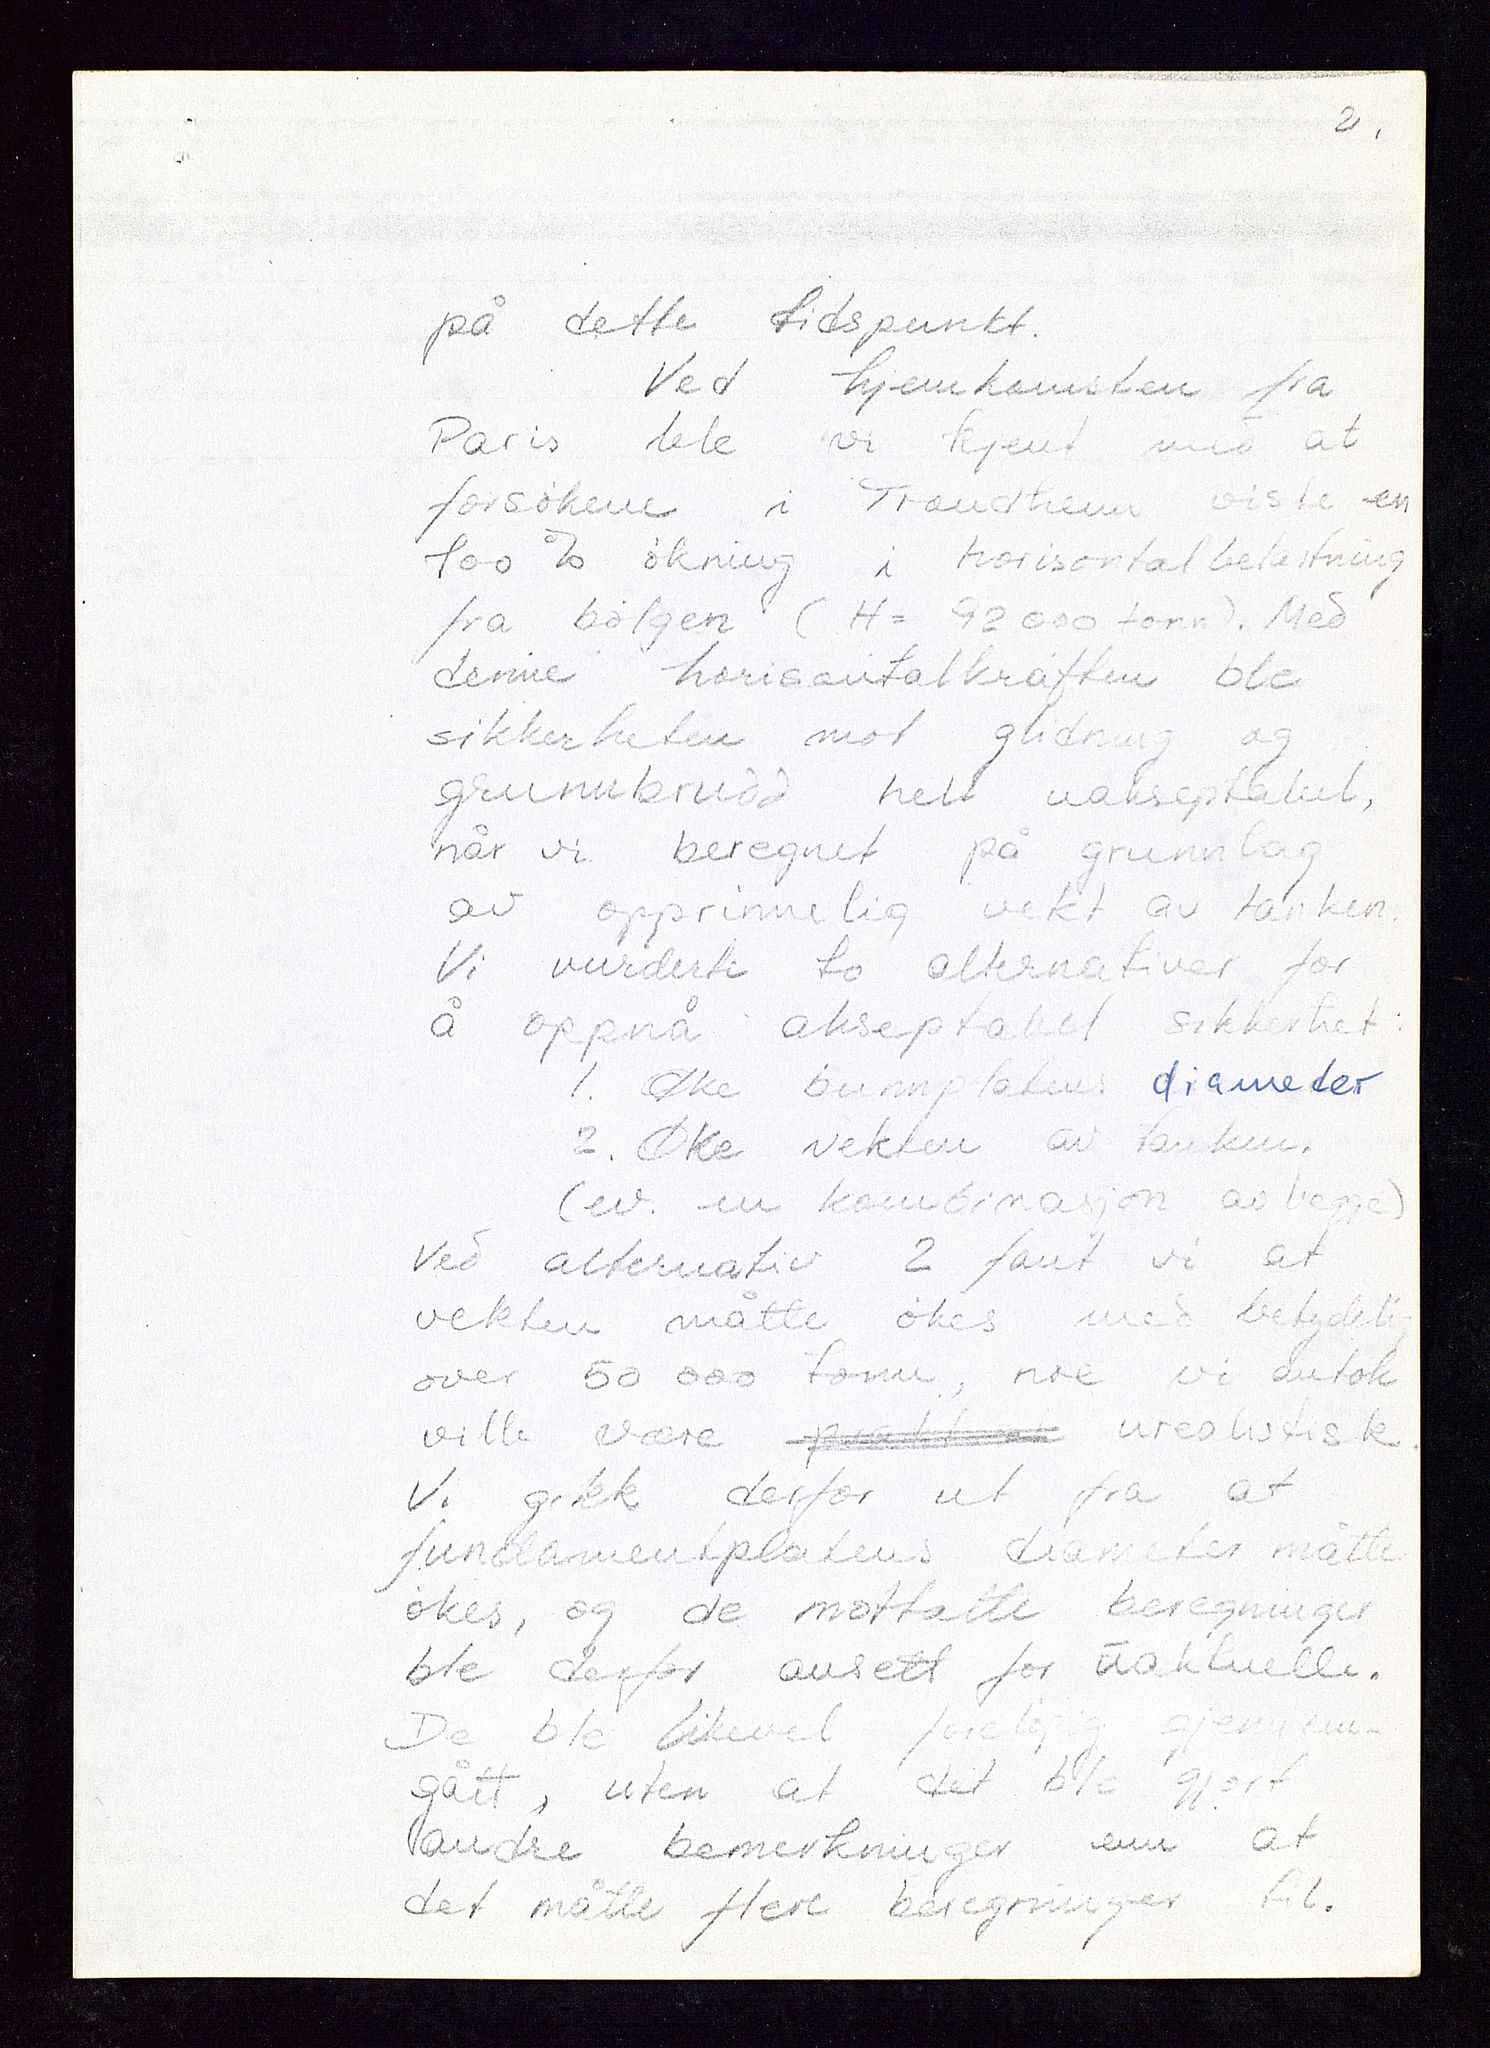 2.
på dette tidspunkt.
Ved hjemkomsten fra
Paris ble vi kjent med at
forsökene i Trondheim viste en
100 % ökning i horisontalbelastning
fra bölgen (H = 92 000 tonn). Med
denne horisontalkraften ble
sikkerheten mot glidning og
grunnbrudd helt uakseptabel,
når vi beregnet på grunnlag
av opprinnelig vekt av tanken.
Vi vurderte to alternativer for
å oppnå akseptabel sikkerhet:
1. Øke bunnplatens diameter
2. Øke vekten av tanken.
(ev. en kombinasjon av begge)
Ved alternativ 2 fant vi at
vekten måtte ökes med betydelig
over 50 000 tonn, noe vi antok
ville være urealistisk.
Vi gikk derfor ut fra at
fundamentplatens diameter måtte
ökes, og de mottatte beregninger
ble derfor ansett for uaktuelle.
De ble likevel foreløpig gjennom-
gått, uten at det ble gjort
andre bemerkninger enn at
det måtte flere beregninger til.